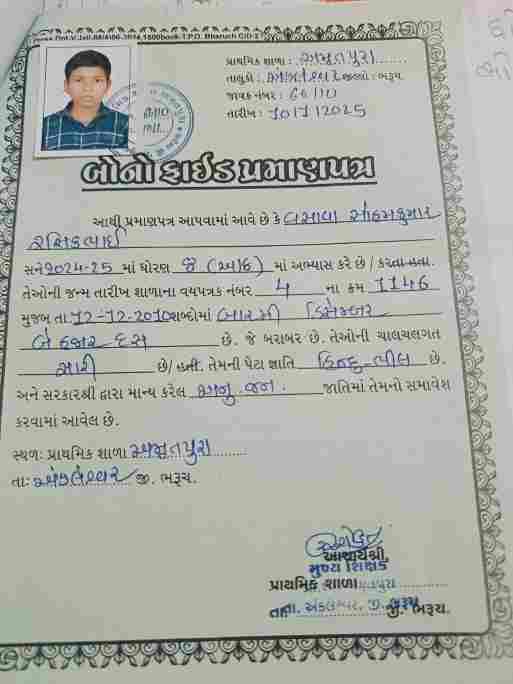 પ્રાથમિક શાળા : અમૃતપુરા
તાલુકો : અંકલેશ્વર જીલ્લો : ભરૂચ.
જાવક નંબર : 60/10
તારીખ : 10/1/2025
બોનો ફાઈડ પ્રમાણપત્ર
આથી પ્રમાણપત્ર આપવામાં આવે છે કે વસાવા સોહમકુમાર
રસિકભાઈ
સને 2024-25 માં ધોરણ 8 (આઠ) માં અભ્યાસ કરે છે / કરતા હતા.
તેઓની જન્મ તારીખ શાળાના વયપત્રક નંબર 4 ના ક્રમ 1146
મુજબ તા 12-12-2010 શબ્દોમાં બારમી ડિસેમ્બર
બે હજાર દસ છે. જે બરાબર છે. તેઓની ચાલચલગત
સારી છે/ હતી. તેમની પેટા જાતિ હિન્દુ-ભીલ છે.
અને સરકારશ્રી દ્વારા માન્ય કરેલ અનુ. જન. જાતિમાં તેમનો સમાવેશ
કરવામાં આવેલ છે.
સ્થળઃ પ્રાથમિક શાળા અમૃતપુરા
તાઃ અંકલેશ્વર જી. ભરૂચ.
આચાર્યશ્રી,
મુખ્ય શિક્ષક
પ્રાથમિક શાળા
તા. અંકલેશ્વર, જી. ભરૂચ.